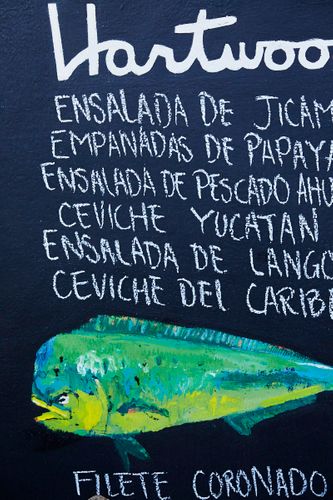 Hartwoo
ENSALADA DE JICAM
EMPANADAS DE PAPAYA
ENSALADA DE PESCADO AHU
CEVICHE YUCATAN
ENSALADA DE LANGO
CEVICHE DEL CARIBE
FILETE CORONADO